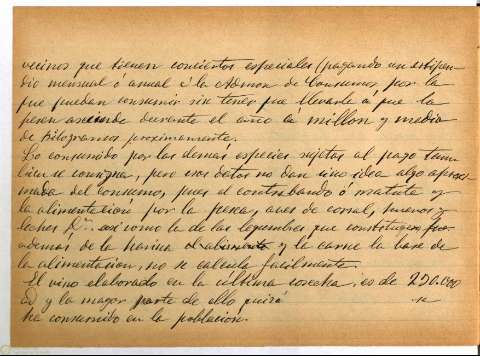 vecinos que tienen conciertos especiales (pagando un estipen-
dio mensual ó anual á la Admon de Consumos, por lo
que puedan consumir sin tener que llevarle a que la
pesen asciende durante el año á millon y medio
de kilogramos proximamente.
Lo consumido por las demás especies sujetas al pago tam-
bien se consigna, pero esos datos no dan una idea algo aproxi-
mada del consumo, pues el contrabando ó matute y
la alimentación por la pesca, aves de corral, huevos y
leches &ª. asi como la de las legumbres que constituyen
ademas de la harina el alimento y la carne la base de
la alimentacion, no se calcula facilmente.
El vino elaborado en la última cosecha, es de 250.000
y la mayor parte de ello quizá se
ha consumido en la población.